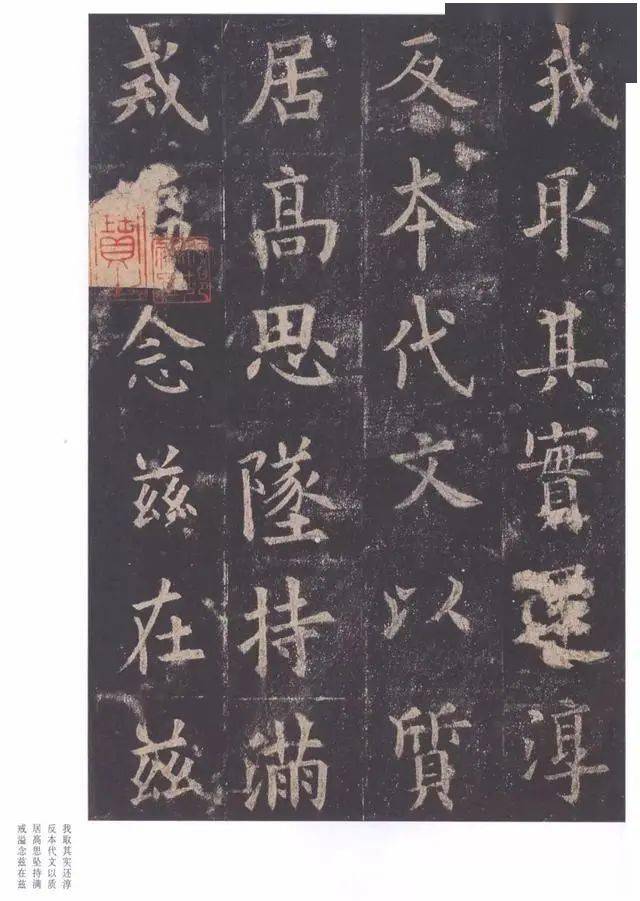 我取其實還淳
反本代文以質
居高思墜持滿
戒溢念茲在茲
我取其实还淳
反本代文以质
居高思坠持满
戒溢念兹在兹